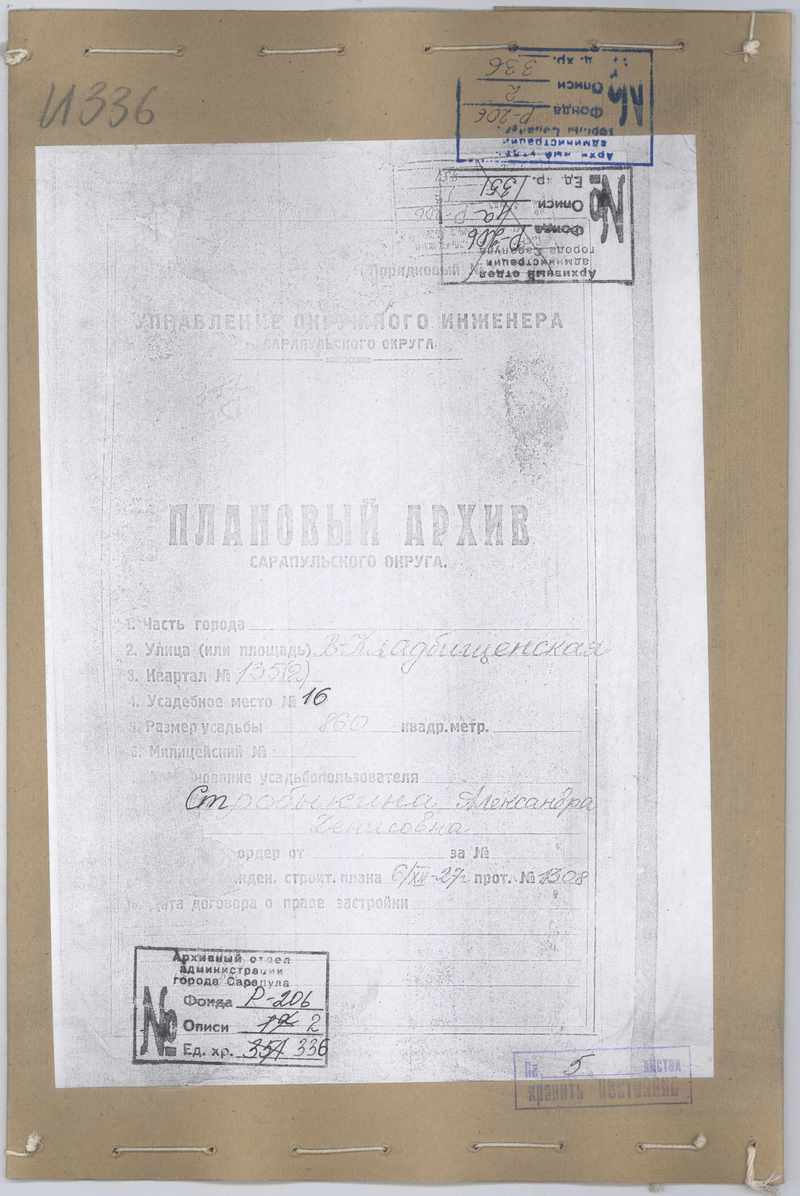 И336
Архивный отдел
администрации
города Сарапула
№ Фонда Р-206
Описи 2
Ед. хр. 336
Архивный отдел
администрации
города Сарапула
№ Фонда Р-206
Описи 1а
Ед. хр. 351
Порядковый №
УПРАВЛЕНИЕ ОКРУЖНОГО ИНЖЕНЕРА
САРАПУЛЬСКОГО ОКРУГА.
ПЛАНОВЫЙ АРХИВ
САРАПУЛЬСКОГО ОКРУГА.
1. Часть города
2. Улица (или площадь) В-Кладбищенская
3. Квартал № 135(2)
4. Усадебное место № 16
5. Размер усадьбы 860 квадр. метр.
6. Милицейский №
нование усадьбопользователя
Стробыкина Александра
Денисовна
ордер от за №
жден. строит. плана 6/XII-27г прот. № 1308
дата договора о праве застройки
Архивный отдел
администрации
города Сарапула
№ Фонда Р-206
Описи 1а 2
Ед. хр. 351 336
На 5 листах
хранить постоянно